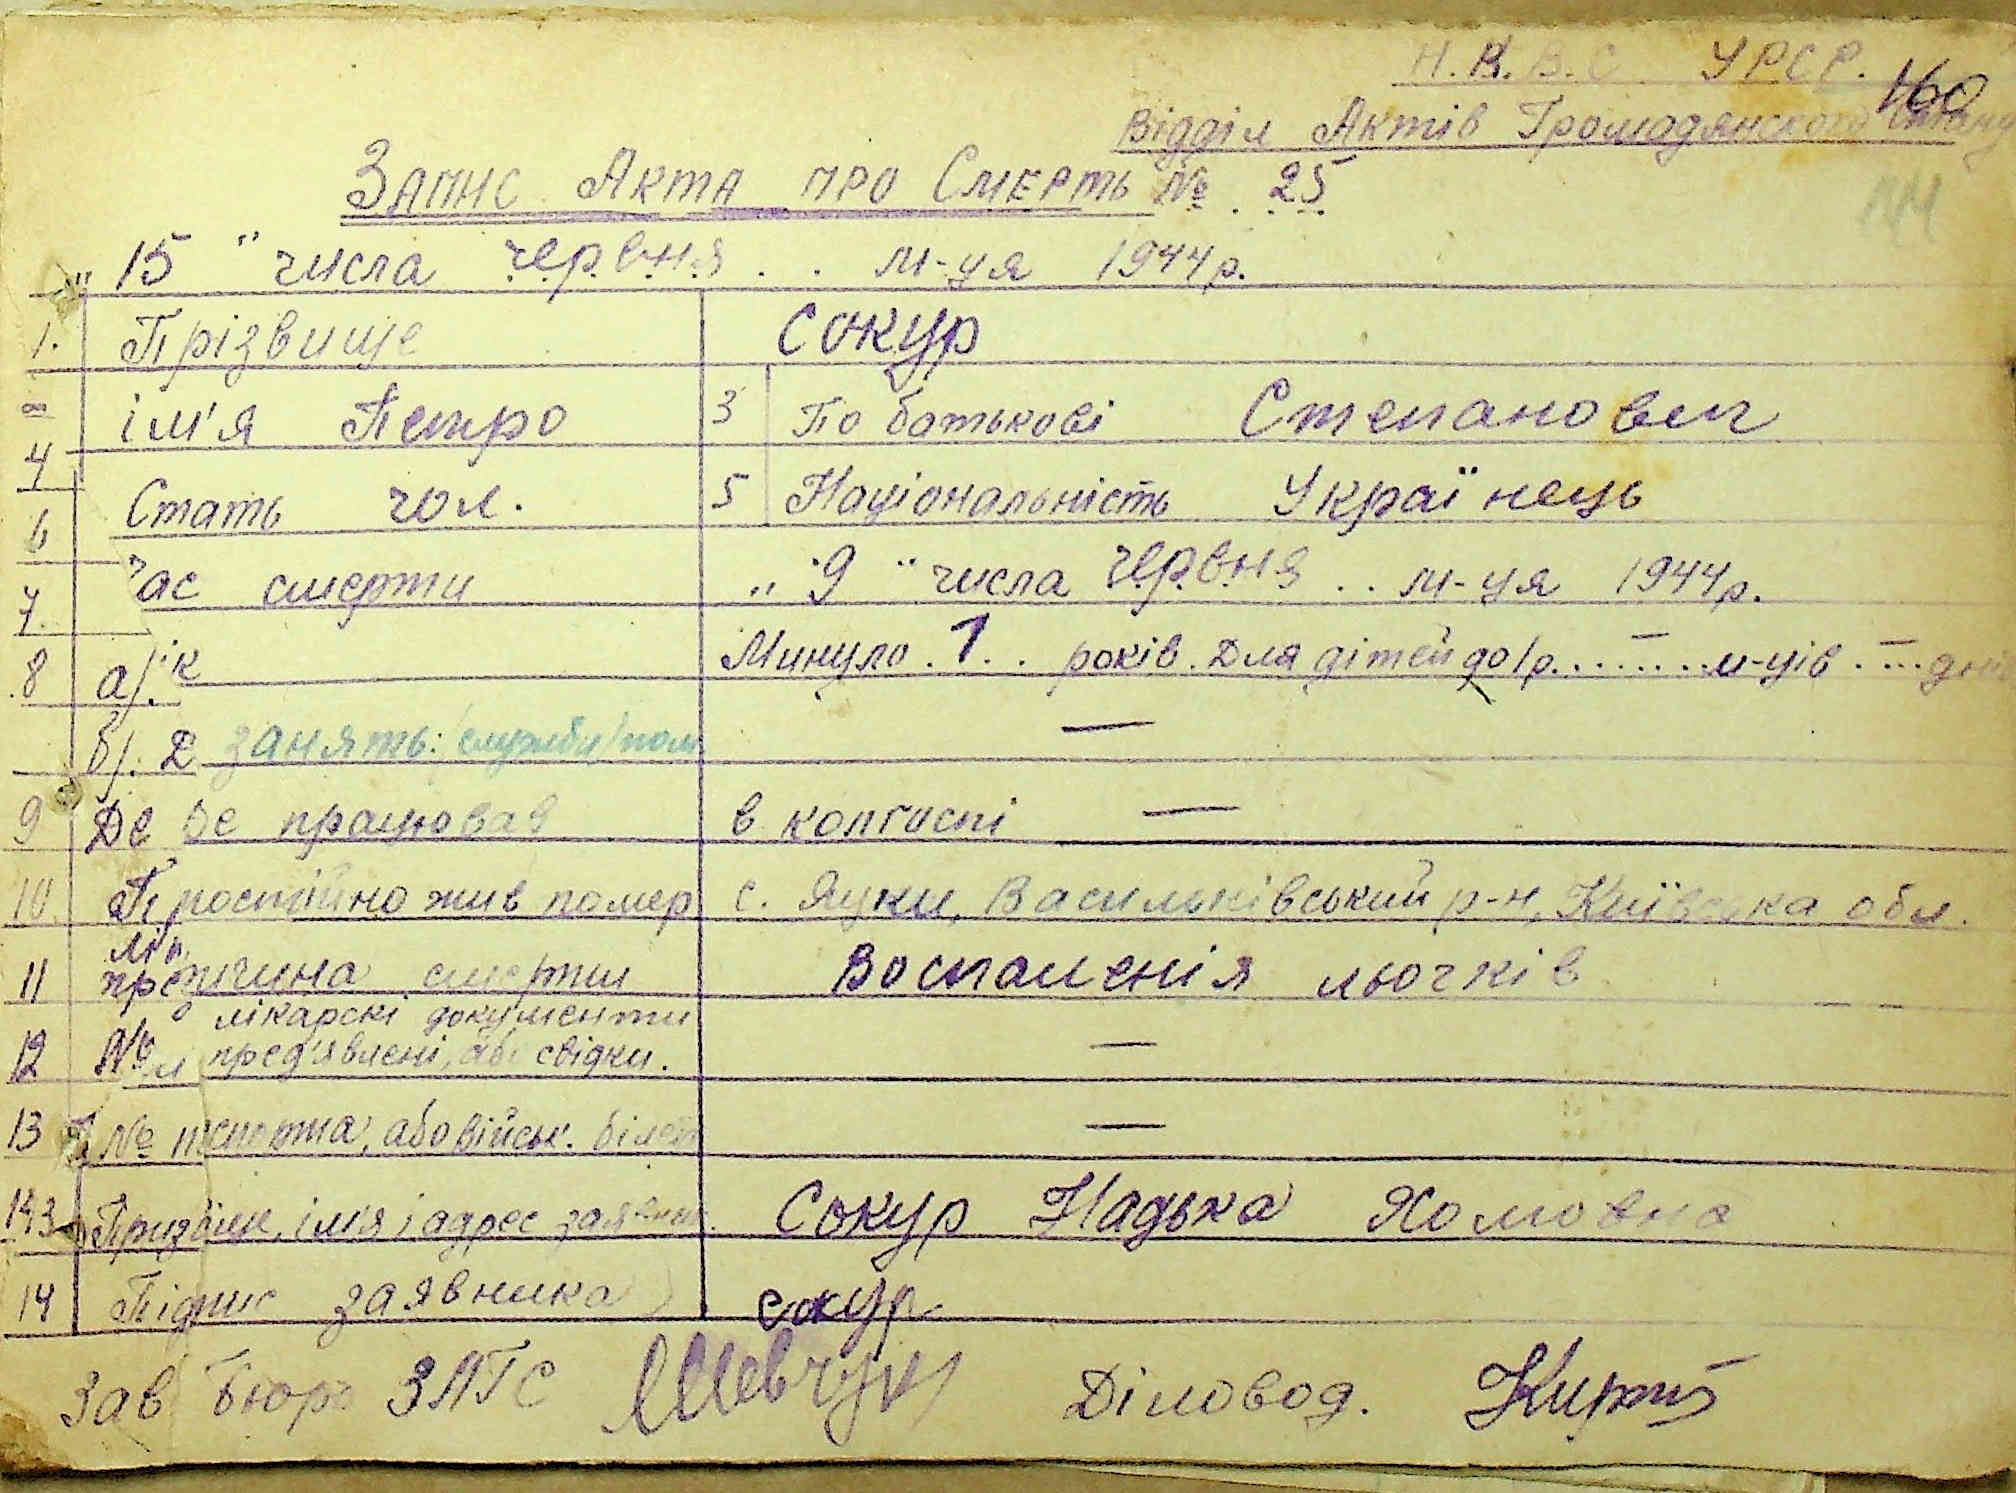 Н.К.В.С. УРСР. 160
Відділ Актів Громадянского Стану
144
Запис Акта про Смерть № 25
"15" числа червня м-ця 1944 р.
1. Прізвище Сокур
ім'я Петро 3 По батькові Степанович
4 Стать чол. 5 Національність Українець
6 Час смерти "9" числа червня м-ця 1944 р.
7. Минуло 1 років. Для дітей до 1 р. — м-ців — днів
8 а).
б). занять: (служби) —
9 Де працював в колгоспі —
10. Постійно жив помер с. Яцки, Васильківський р-н, Київська обл.
11 причина смерти Воспаленія льочків
лікарскі документи
12 пред'явлені, або свідки. —
13 № паспорта, або військ. білета —
Призвище, ім'я і адрес заявник. Сокур Надька Хомовна
14 Підпис заявника Сокур
Зав Бюро ЗАГС Шевчук Діловод.